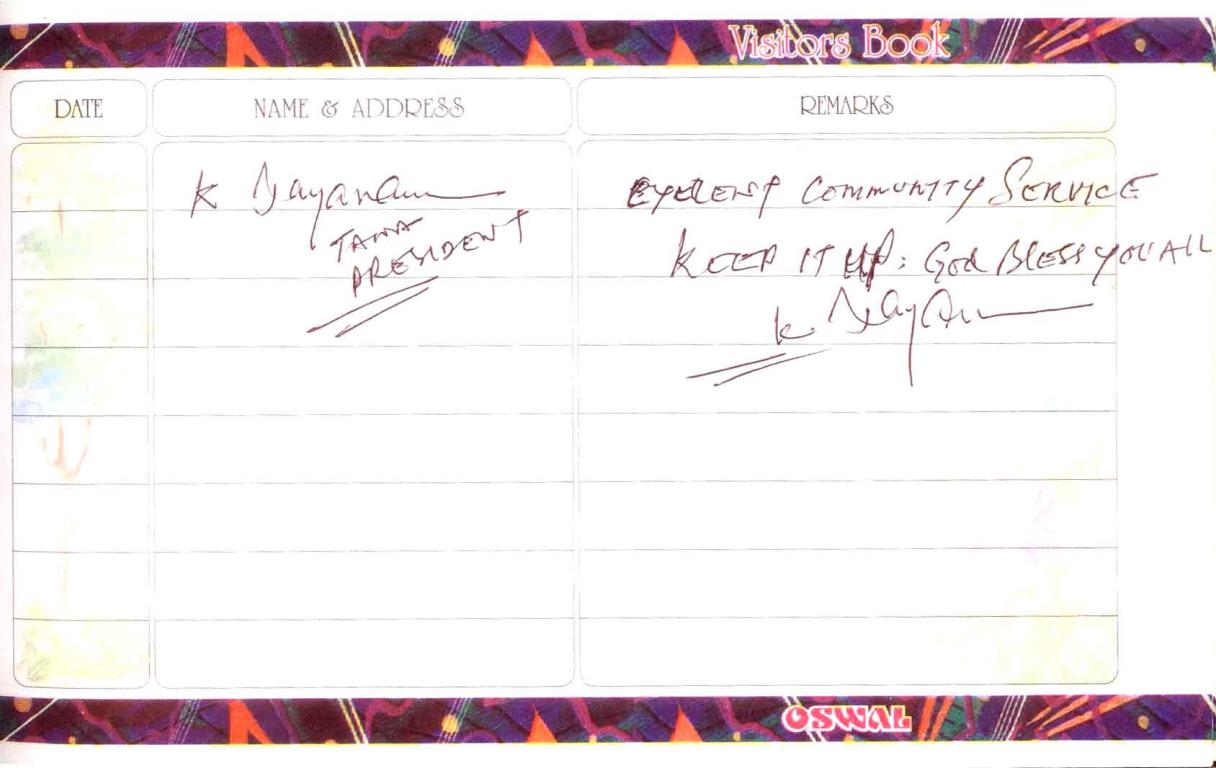 Visitors Book
DATE
NAME & ADDRESS
REMARKS
K Jayaram
TANA
PRESIDENT
EXCELENT COMMUNITY SERVICE
KEEP IT UP; GOD BLESS YOU ALL
K
OSWAL